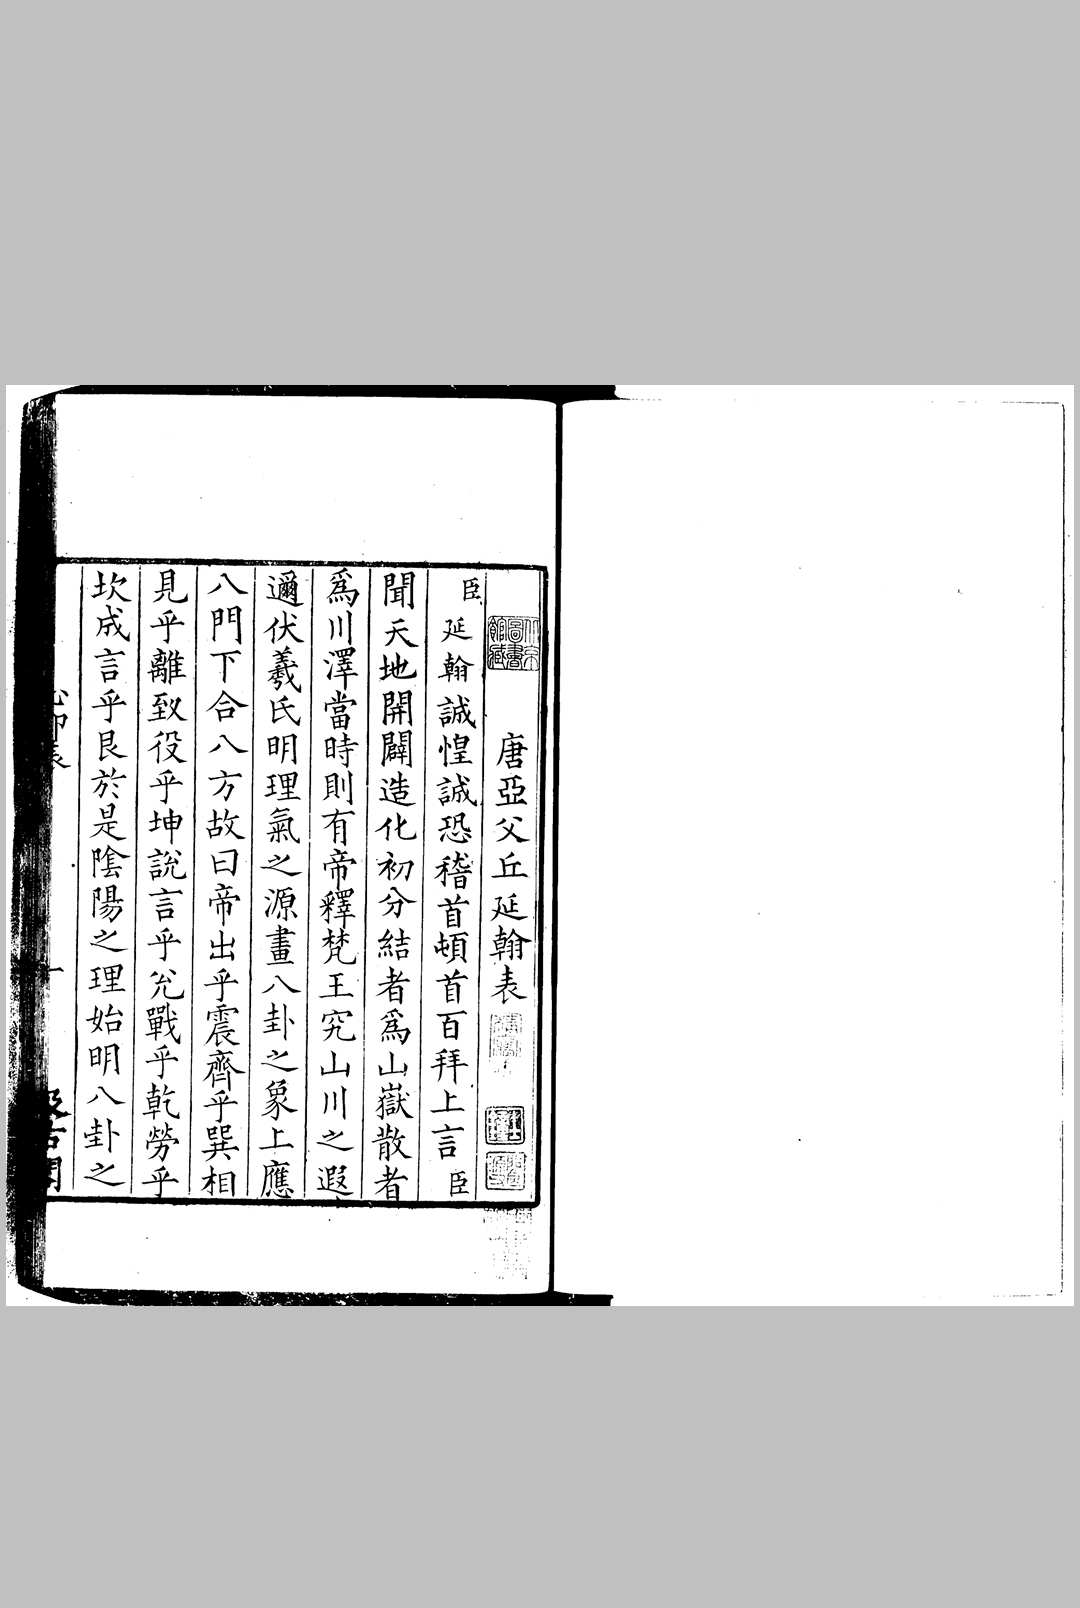 唐亞父丘延翰表
臣延翰誠惶誠恐稽首頓首百拜上言臣
聞天地開闢造化初分結者爲山嶽散者
爲川澤當時則有帝釋梵王究山川之遐
邇伏羲氏明理氣之源畫八卦之象上應
八門下合八方故曰帝出乎震齊乎巽相
見乎離致役乎坤說言乎兊戰乎乾勞乎
坎成言乎艮於是隂陽之理始明八卦之
北京圖書館藏